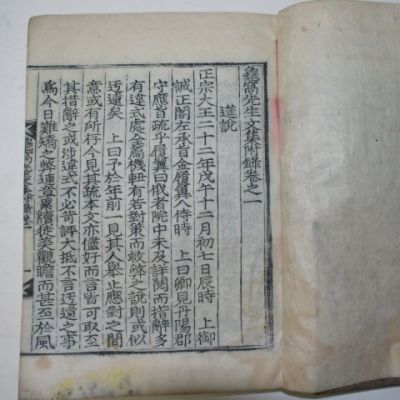 龜窩先生文集附錄卷之一
筵說
正宗大王二十二年戊午十二月初七日辰時 上御
誠正閣左承旨金履翼入侍時 上曰卿見丹陽郡
守應旨疏乎履翼曰俄者院中未及詳閱而措辭多
有違式處全篇機軸有若對策而救弊之說則或似
迂遠矣 上曰予於年前一見其人擧止應對之間
意或有所行今見其疏本文亦儘好而言皆可取至
其措辭之或涉違式不必苛評大抵不言迂遠之事
爲今日難矯之弊連章累牘徒美觀瞻而甚至於風